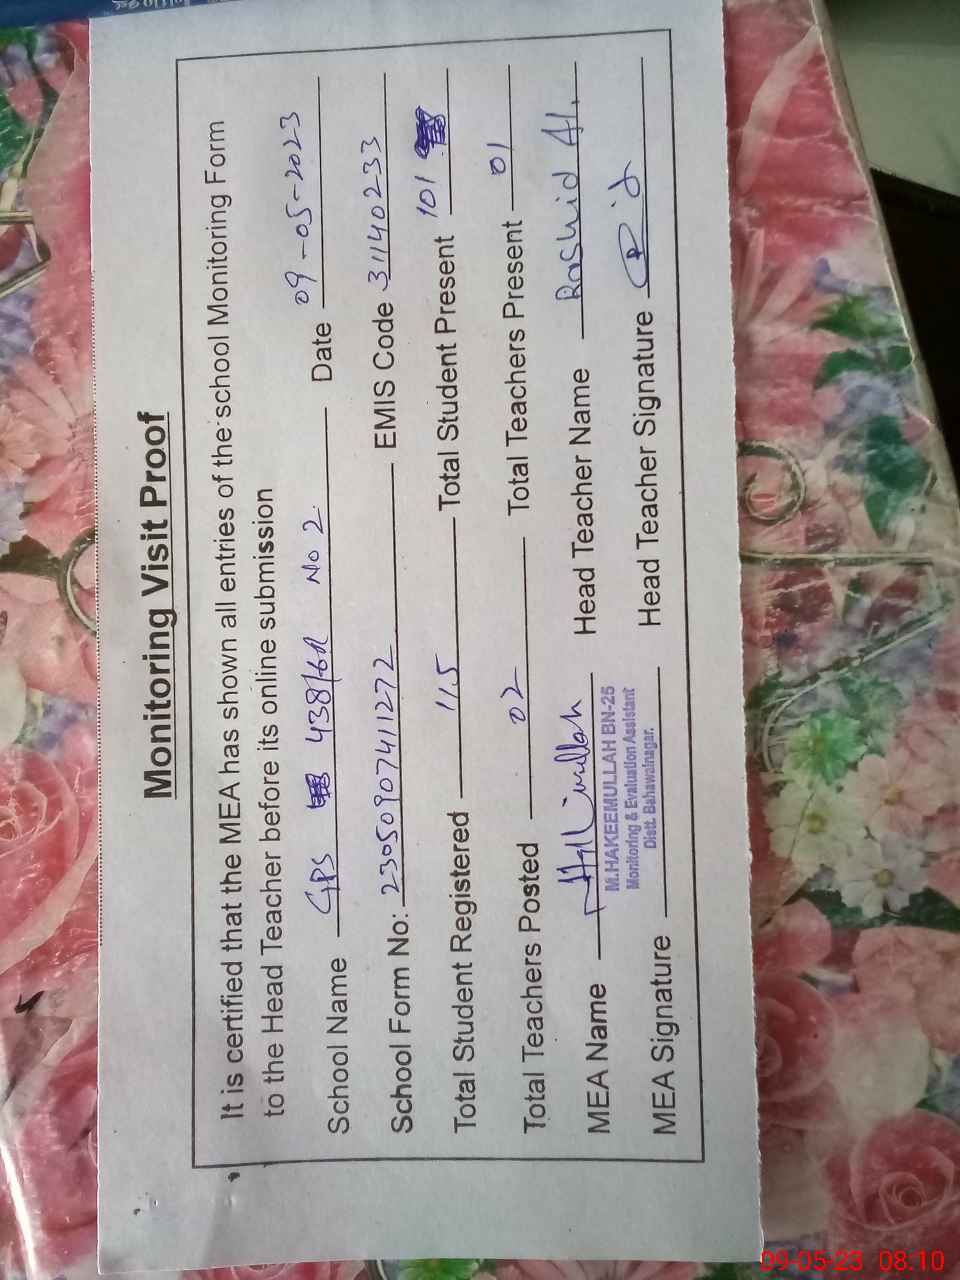 Monitoring Visit Proof
It is certified that the MEA has shown all entries of the school Monitoring Form
to the Head Teacher before its online submission
School Name GPS 438/6R No 2 Date 09-05-2023
School Form No: 23050907411272 EMIS Code 31140233
Total Student Registered 115 Total Student Present 101
Total Teachers Posted 02 Total Teachers Present 01
MEA Name Head Teacher Name Rashid Al.
M.HAKEEMULLAH BN-25
Monitoring & Evaluation Assistant
Distt. Bahawalnagar.
MEA Signature Head Teacher Signature
09-05-23 08:10